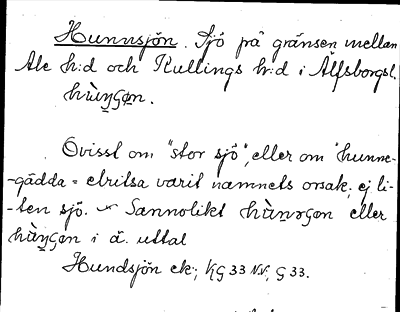 Hunnsjön. Sjö på gränsen mellan
Ale h:d och Kullings h:d i Älfsborgsl.
hùŋʒən.
Ovisst om "stor sjö", eller om "hunne-
-gädda = elritsa varit namnets orsak, ej li-
-ten sjö. Sannolikt hùnəʒən eller
hùŋʒən i ä. uttal
Hundsjön ek; KG 33 NV, G 33.